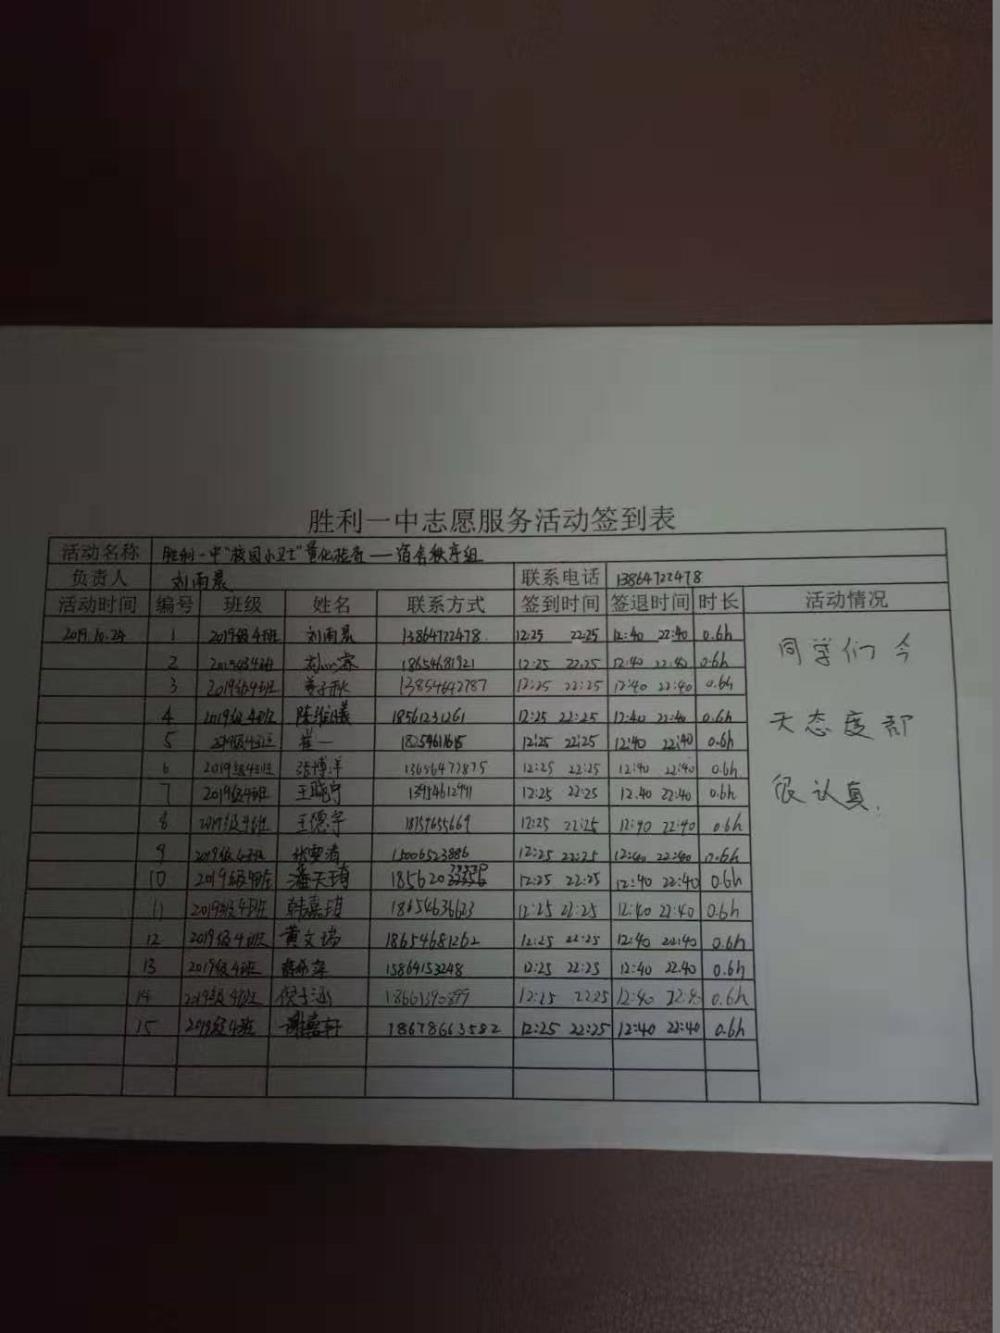 胜利一中志愿服务活动签到表
活动名称 胜利一中"校园小卫士"量化检查——宿舍秩序组
负责人 刘雨晨 联系电话 13864722478
活动时间 编号 班级 姓名 联系方式 签到时间 签退时间 时长 活动情况
2019.10.24 1 2019级4班 刘雨晨 13864722478 12:25 22:25 12:40 22:40 0.6h
2 2019级4班 18654681921 12:25 22:25 12:40 22:40 0.6h
3 2019级4班 姜子秋 13854642787 12:25 22:25 12:40 22:40 0.6h
4 2019级4班 陈维曦 18561231261 12:25 22:25 12:40 22:40 0.6h
5 2019级4班 崔一 18254611615 12:25 22:25 12:40 22:40 0.6h
6 2019级4班 张博洋 13656477875 12:25 22:25 12:40 22:40 0.6h
7 2019级4班 王晓宁 12:25 22:25 12:40 22:40 0.6h
8 2019级4班 王德宇 12:25 22:25 12:40 22:40 0.6h
9 2019级4班 15006523886 12:25 22:25 12:40 22:40 0.6h
10 2019级4班 潘天琦 12:25 22:25 12:40 22:40 0.6h
11 2019级4班 韩嘉琪 18654636623 12:25 22:25 12:40 22:40 0.6h
12 2019级4班 黄文瑞 18654681262 12:25 22:25 12:40 22:40 0.6h
13 2019级4班 15864153248 12:25 22:25 12:40 22:40 0.6h
14 2019级4班 倪子涵 12:25 22:25 12:40 22:40 0.6h
15 2019级4班 谢嘉轩 18678663582 12:25 22:25 12:40 22:40 0.6h
同学们今
天态度都
很认真.